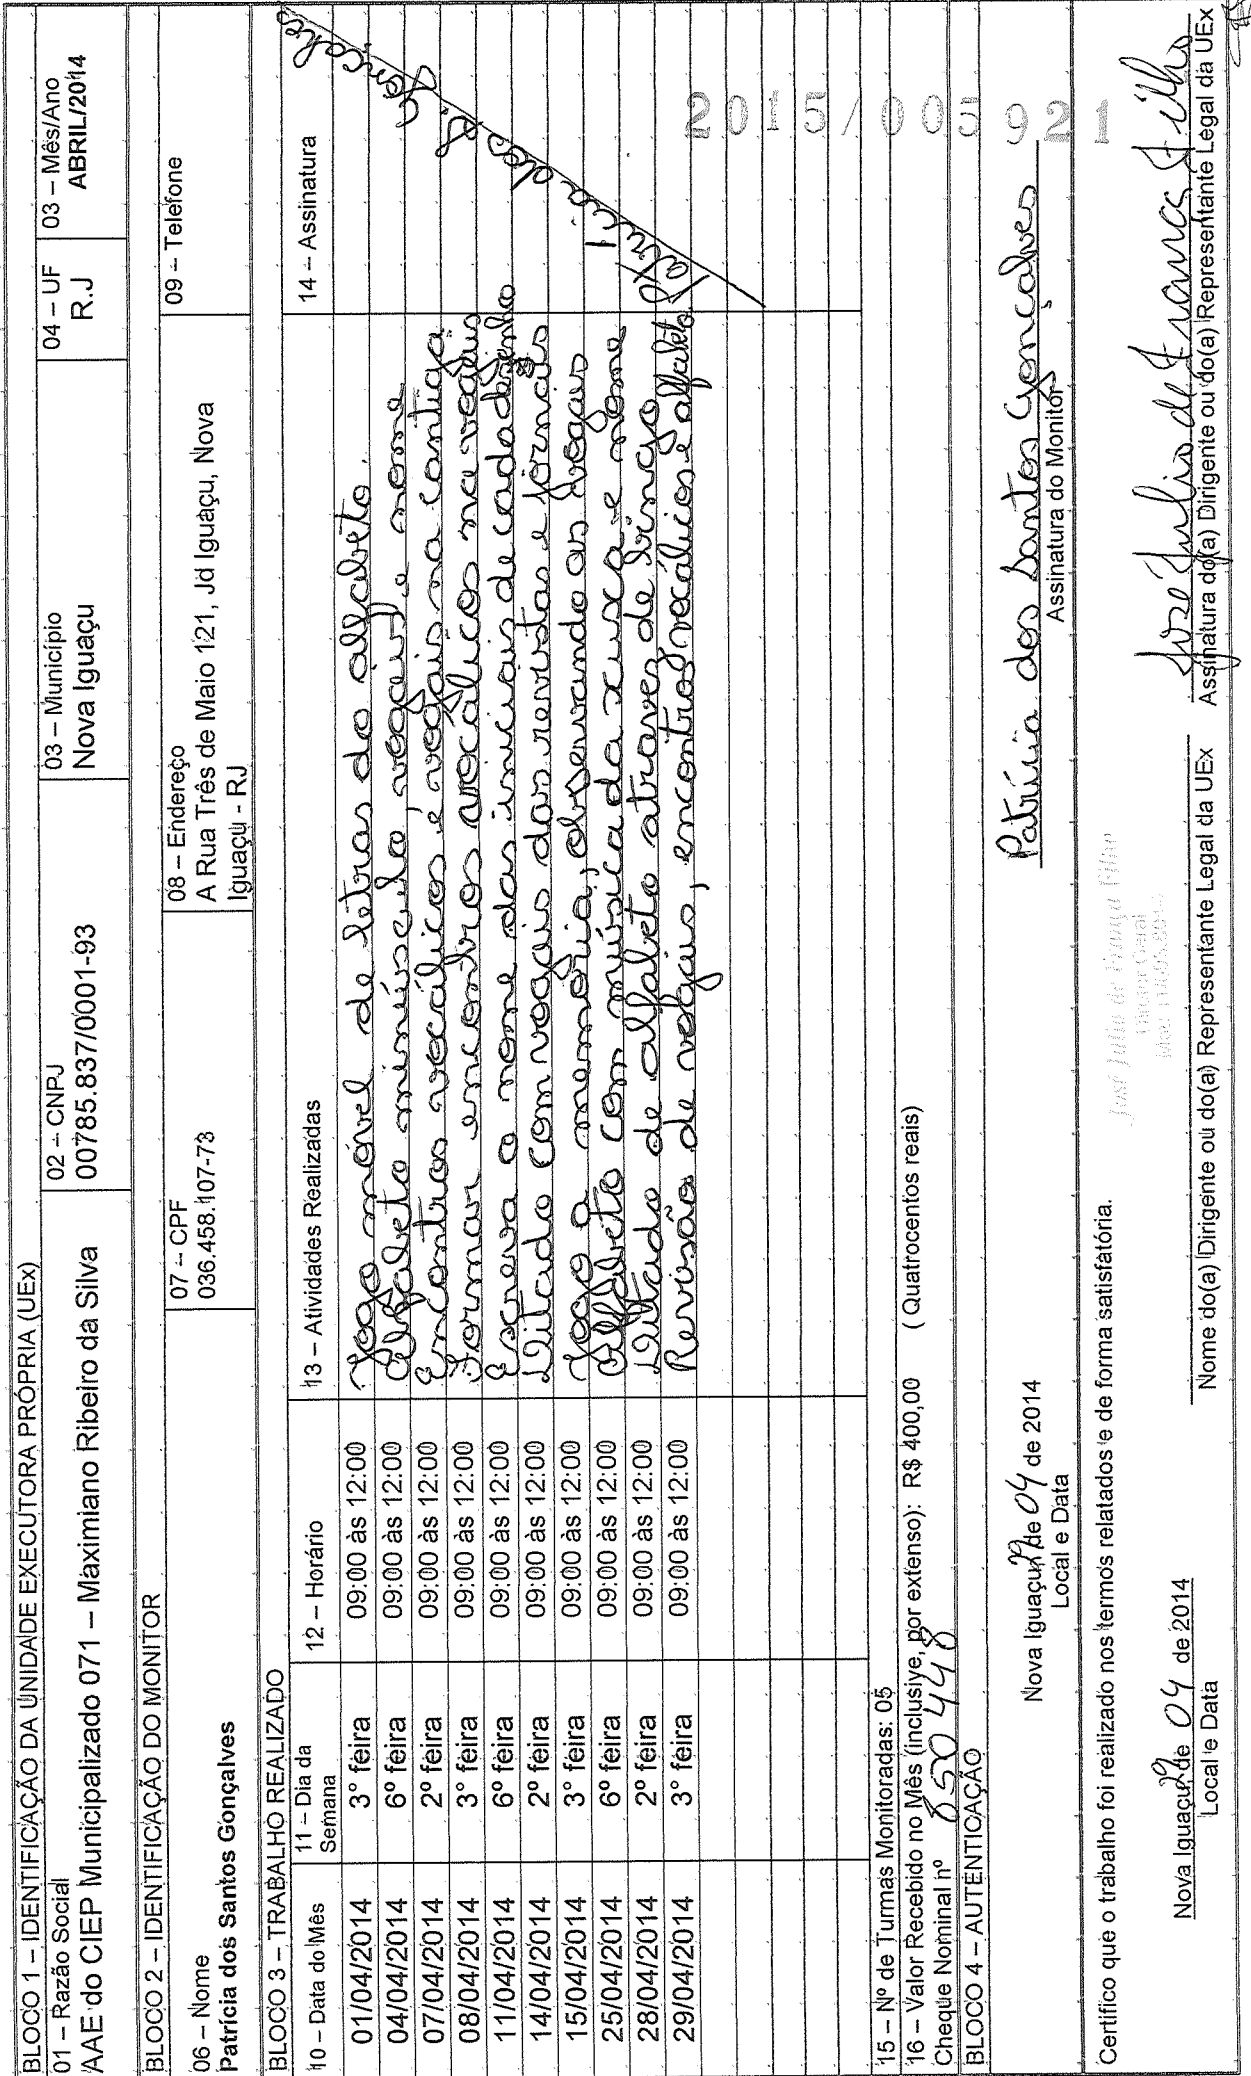 BLOCO 1 – IDENTIFICAÇÃO DA UNIDADE EXECUTORA PRÓPRIA (UEx)
01 – Razão Social
AAE do CIEP Municipalizado 071 – Maximiano Ribeiro da Silva
02 – CNPJ
00785.837/0001-93
03 – Município
Nova Iguaçu
04 – UF
R.J
03 – Mês/Ano
ABRIL/2014
BLOCO 2 – IDENTIFICAÇÃO DO MONITOR
06 – Nome
Patrícia dos Santos Gonçalves
07 – CPF
036.458.107-73
08 – Endereço
A Rua Três de Maio 121, Jd Iguaçu, Nova
Iguaçu - RJ
09 – Telefone
BLOCO 3 – TRABALHO REALIZADO
10 – Data do Mês 11 – Dia da Semana 12 – Horário 13 – Atividades Realizadas 14 – Assinatura
01/04/2014 3° feira 09:00 às 12:00 Jogo móvel de letras do alfabeto.
04/04/2014 6º feira 09:00 às 12:00 Alfabeto minúsculo, vogais e nome
07/04/2014 2º feira 09:00 às 12:00 Encontros vocálicos e vogais na cantiga
08/04/2014 3° feira 09:00 às 12:00 Formar encontros vocálicos na vogais
11/04/2014 6º feira 09:00 às 12:00 Escreva o nome das iniciais de cada desenho
14/04/2014 2º feira 09:00 às 12:00 Ditado com vogais das revistas e jornais
15/04/2014 3° feira 09:00 às 12:00 Jogo a memória, observando as vogais
25/04/2014 6º feira 09:00 às 12:00 Alfabeto com música da xuxa e nome
28/04/2014 2º feira 09:00 às 12:00 Ditado de alfabeto atraves de bingo
29/04/2014 3° feira 09:00 às 12:00 Revisão de vogais, encontros vocálicos e alfabeto
Patrícia dos S. Gonçalves
2015/005921
15 – Nº de Turmas Monitoradas: 05
16 – Valor Recebido no Mês (inclusive, por extenso): R$ 400,00 ( Quatrocentos reais)
Cheque Nominal nº 850448
BLOCO 4 – AUTENTICAÇÃO
Nova Iguaçu, 29 de 04 de 2014
Local e Data
Patrícia dos Santos Gonçalves
Assinatura do Monitor
Certifico que o trabalho foi realizado nos termos relatados e de forma satisfatória.
José Julio de França Filho
Diretor Geral
Nova Iguaçu, 29 de 04 de 2014
Local e Data
Nome do(a) Dirigente ou do(a) Representante Legal da UEx
José Julio de França Filho
Assinatura do(a) Dirigente ou do(a) Representante Legal da UEx